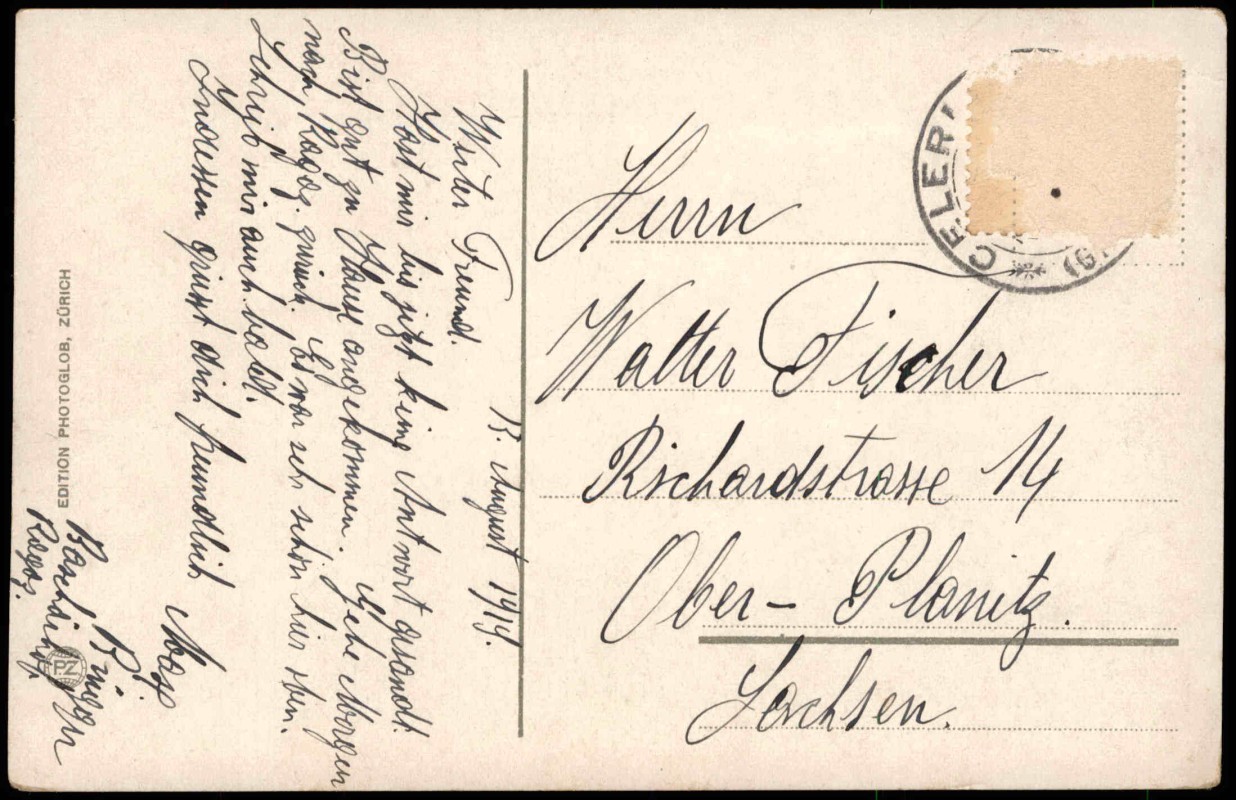 13. August 1919.
Werter Freund.
Hast mir bis jetzt keine Antwort gesandt.
Bist gut zu Hause angekommen. Gehe Morgen
nach Ragaz zurück. Es war sehr schön hier oben.
Schreib mir auch bald.
Indessen grüsst dich freundlich
Max
Ragaz.
EDITION PHOTOGLOB, ZÜRICH
PZ
CELERI
(G
Herrn
Walter Fischer
Richardstrasse 14
Ober-Planitz.
Sachsen.